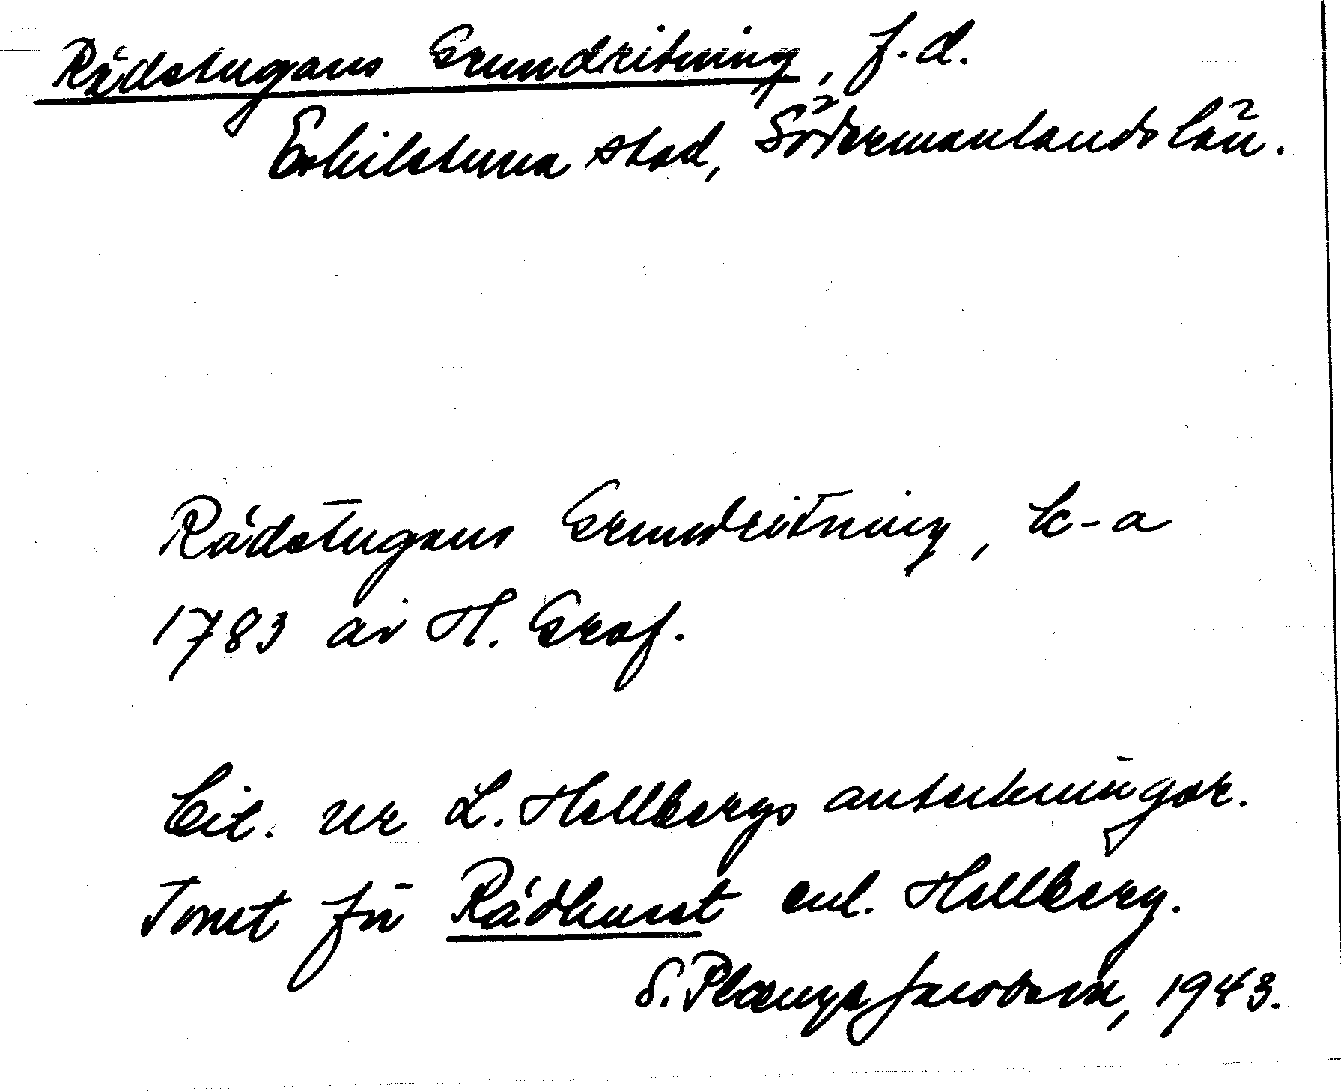 Rådstugans Grundritning, f.d.
Eskilstuna stad, Södermanlands län.
Rådstugans Grundritning, k-a
1783 av H. Graf.
Cit. ur L. Hellbergs anteckningar.
Tomt för Rådhuset enl. Hellberg.
S. Jacobson, 1943.